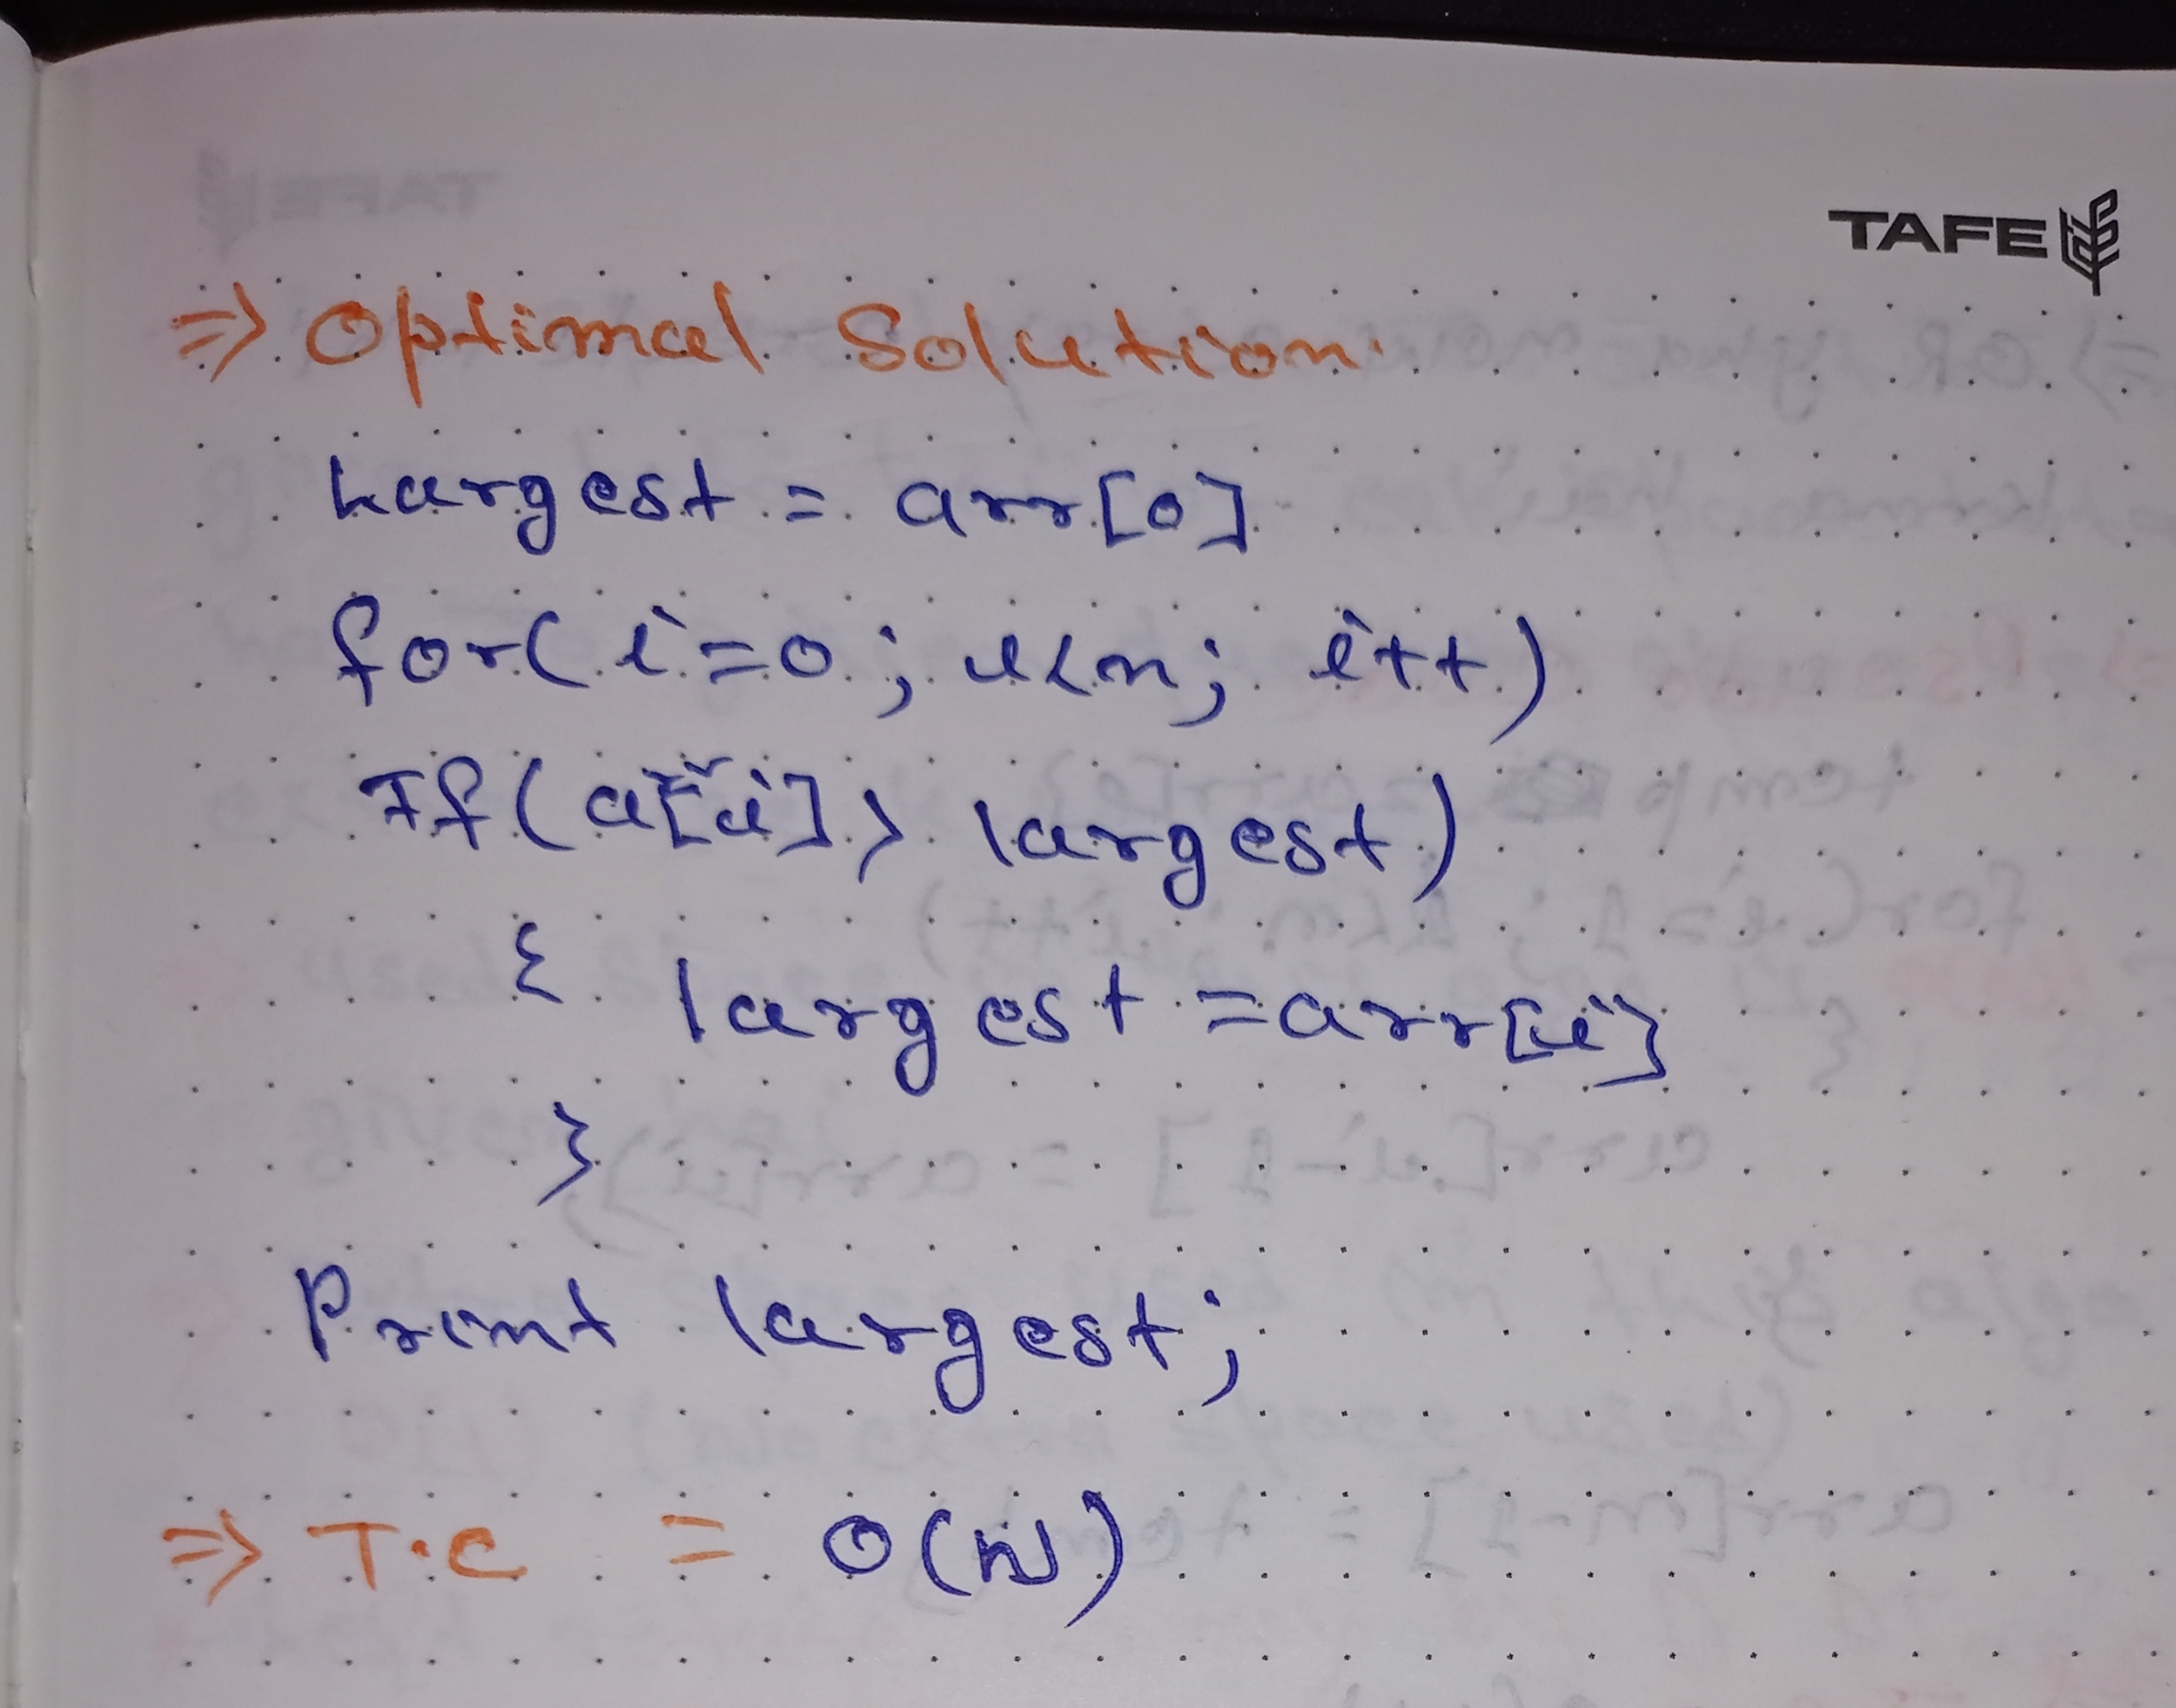 TAFE
⇒ Optimal Solution
Largest = arr[0]
for( i=0; i<n; i++)
If(a[i] > largest)
{ largest = arr[i]
}
Print largest;
⇒ T.C = O(N)